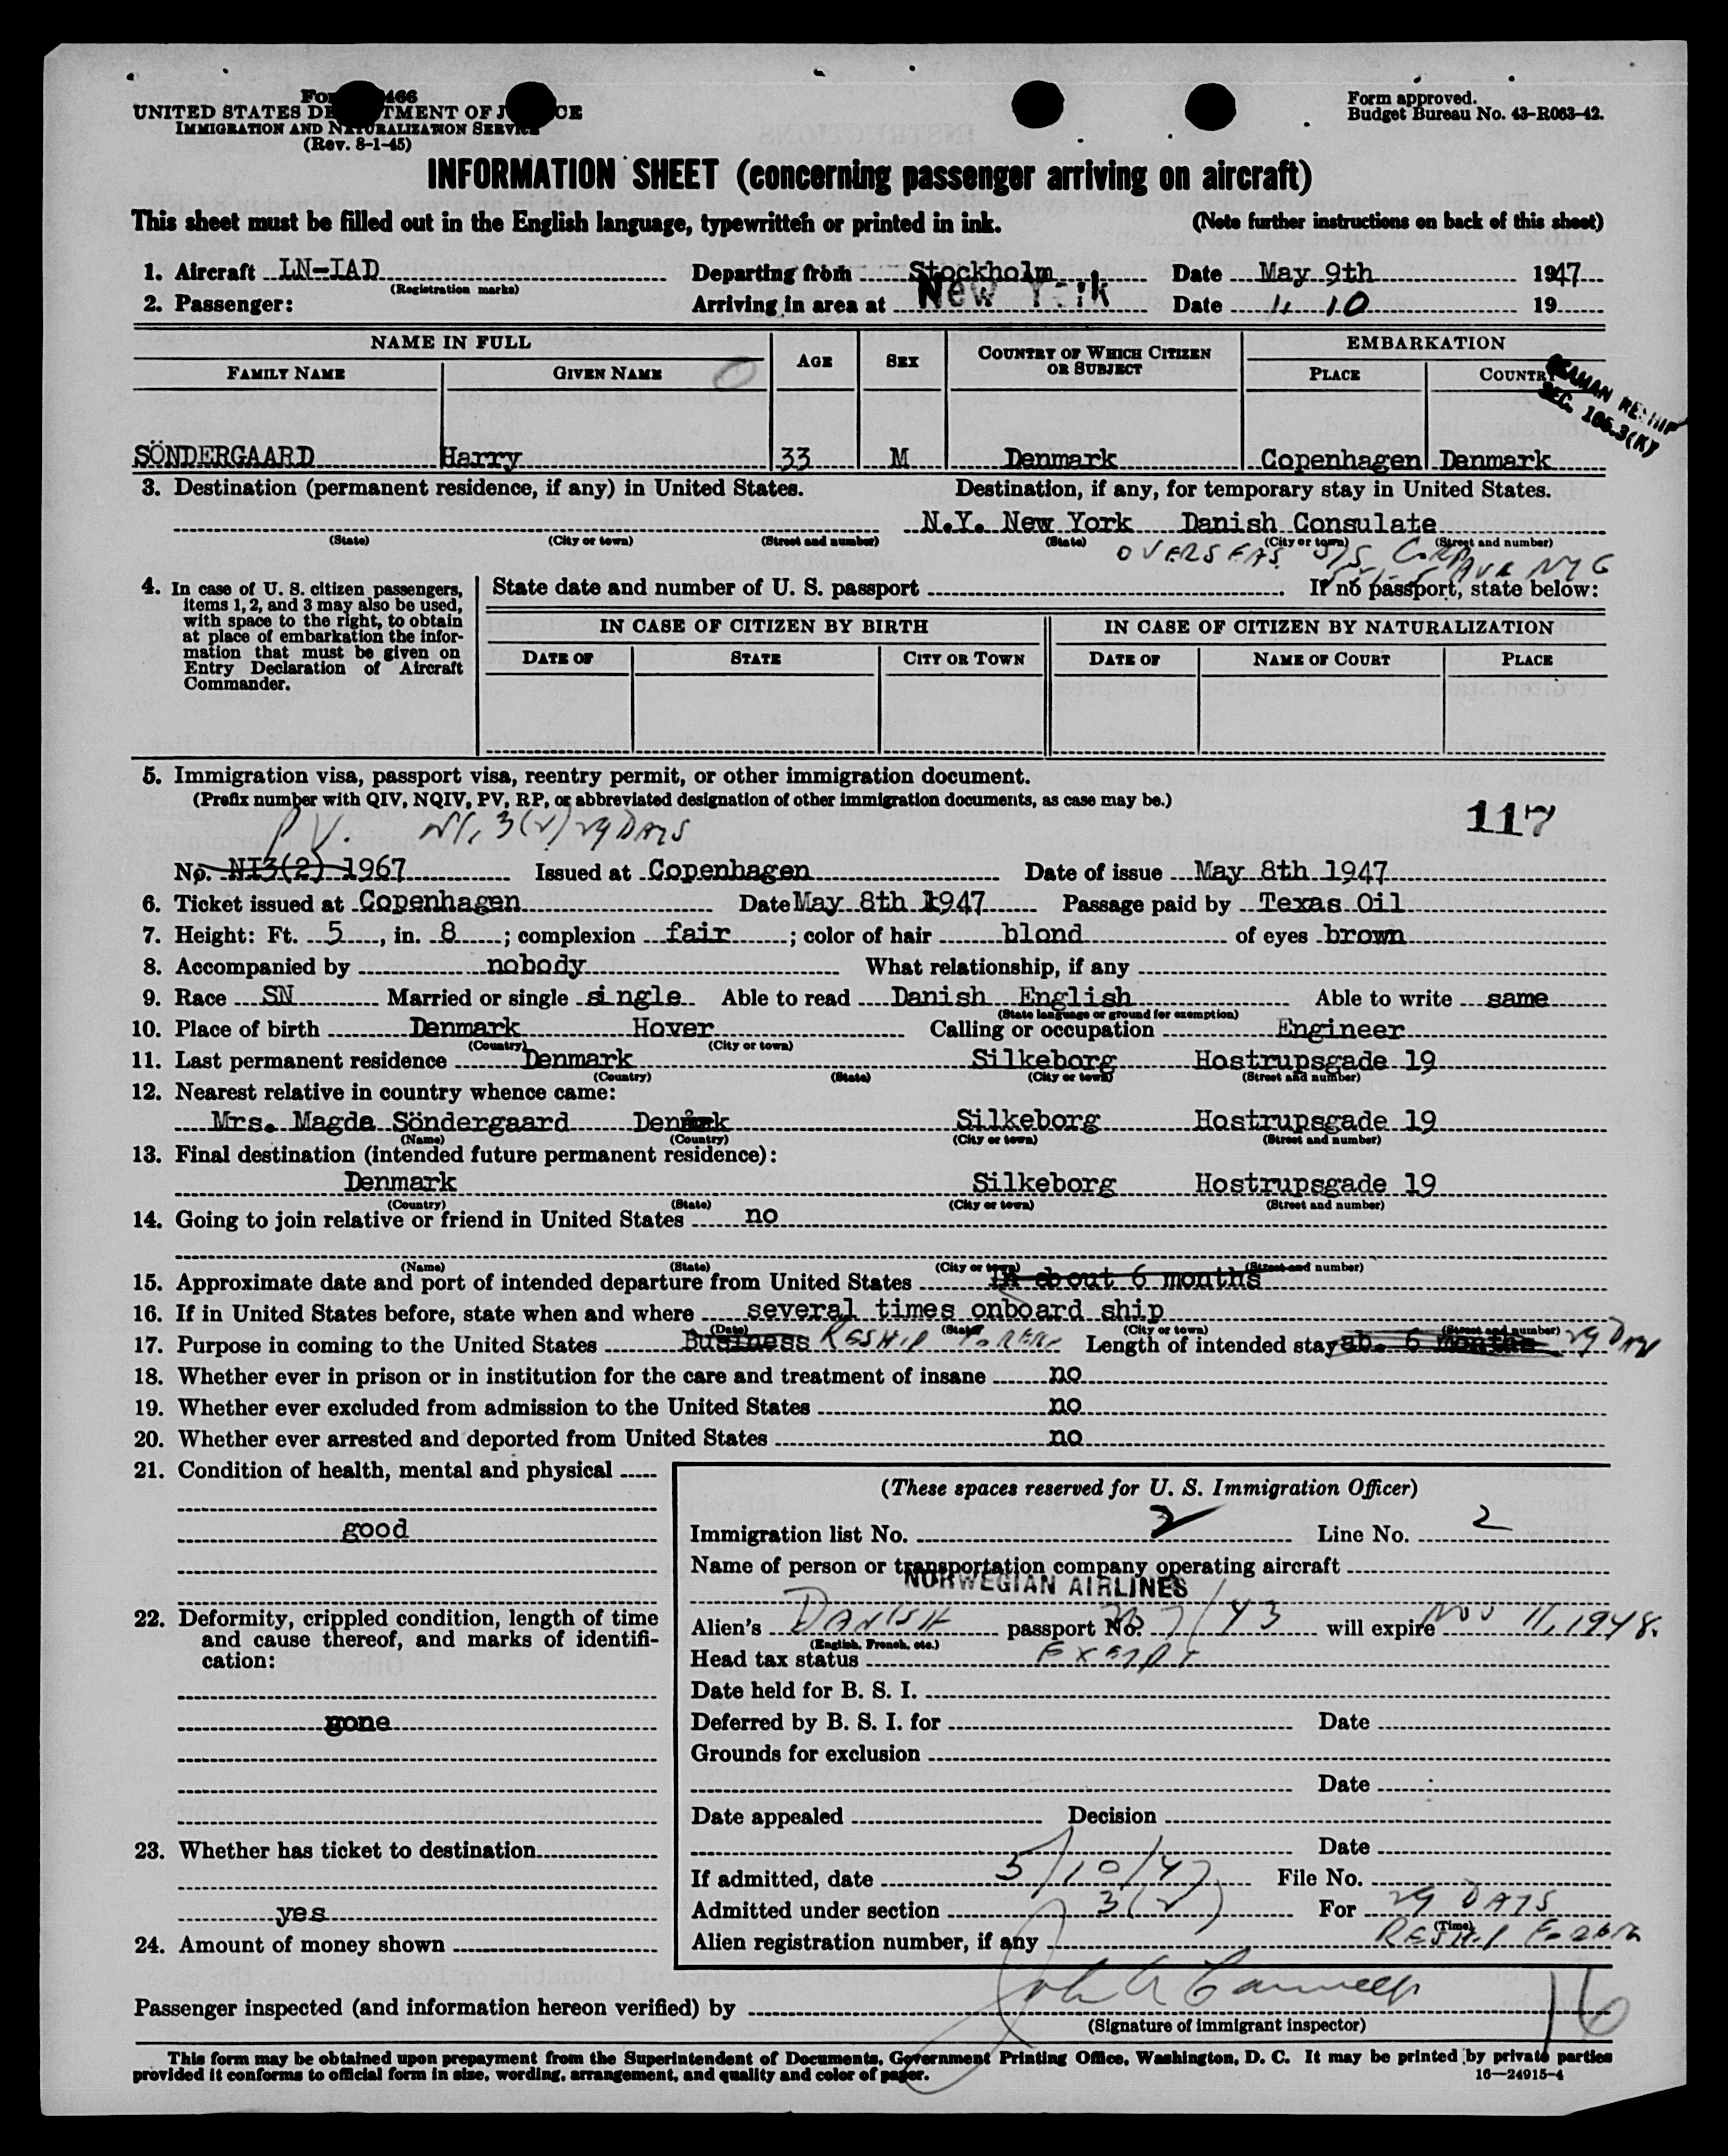 Form 466
UNITED STATES DE TMENT OF J CE
IMMIGRATION AND NATURALIZATION SERVICE
(Rev. 8-1-45)
Form approved.
Budget Bureau No. 43-R063-42.
INFORMATION SHEET (concerning passenger arriving on aircraft)
This sheet must be filled out in the English language, typewritten or printed in ink. (Note further instructions on back of this sheet)
1. Aircraft LN-IAD Departing from Stockholm Date May 9th 1947
(Registration marks)
2. Passenger: Arriving in area at New York Date 11 10 19
NAME IN FULL AGE SEX COUNTRY OF WHICH CITIZEN OR SUBJECT EMBARKATION
FAMILY NAME GIVEN NAME PLACE COUNTRY
SEAMAN RESHIP
SEC. 165.3(K)
SÖNDERGAARD Harry 33 M Denmark Copenhagen Denmark
3. Destination (permanent residence, if any) in United States. Destination, if any, for temporary stay in United States.
N.Y. New York Danish Consulate
(State) (City or town) (Street and number) (State) (City or town) (Street and number)
OVERSEAS S/S Corp
AVE NYC
4. In case of U. S. citizen passengers, items 1, 2, and 3 may also be used, with space to the right, to obtain at place of embarkation the information that must be given on Entry Declaration of Aircraft Commander.
State date and number of U. S. passport If no passport, state below:
IN CASE OF CITIZEN BY BIRTH IN CASE OF CITIZEN BY NATURALIZATION
DATE OF STATE CITY OR TOWN DATE OF NAME OF COURT PLACE
5. Immigration visa, passport visa, reentry permit, or other immigration document.
(Prefix number with QIV, NQIV, PV, RP, or abbreviated designation of other immigration documents, as case may be.)
117
PV. NI, 3(2) 29 DAYS
No. NI3(2) 1967 Issued at Copenhagen Date of issue May 8th 1947
6. Ticket issued at Copenhagen Date May 8th 1947 Passage paid by Texas Oil
7. Height: Ft. 5, in. 8; complexion fair; color of hair blond of eyes brown
8. Accompanied by nobody What relationship, if any
9. Race SN Married or single single Able to read Danish English Able to write same
(State language or ground for exemption)
10. Place of birth Denmark Hover Calling or occupation Engineer
(Country) (City or town)
11. Last permanent residence Denmark Silkeborg Hostrupsgade 19
(Country) (State) (City or town) (Street and number)
12. Nearest relative in country whence came:
Mrs. Magda Söndergaard Denmark Silkeborg Hostrupsgade 19
(Name) (Country) (City or town) (Street and number)
13. Final destination (intended future permanent residence):
Denmark Silkeborg Hostrupsgade 19
(Country) (State) (City or town) (Street and number)
14. Going to join relative or friend in United States no
(Name) (State) (City or town) (Street and number)
15. Approximate date and port of intended departure from United States in about 6 months
16. If in United States before, state when and where several times onboard ship
(Date) (State) (City or town) (Street and number)
17. Purpose in coming to the United States Business RESHIP FOREIGN Length of intended stay ab. 6 months 29 DAYS
18. Whether ever in prison or in institution for the care and treatment of insane no
19. Whether ever excluded from admission to the United States no
20. Whether ever arrested and deported from United States no
21. Condition of health, mental and physical
good
22. Deformity, crippled condition, length of time and cause thereof, and marks of identification:
none
23. Whether has ticket to destination
yes
24. Amount of money shown
(These spaces reserved for U. S. Immigration Officer)
Immigration list No. 2 Line No. 2
Name of person or transportation company operating aircraft
NORWEGIAN AIRLINES
Alien's DANISH passport No. /43 will expire Nov 11, 1948.
(English, French, etc.)
Head tax status EXEMPT
Date held for B. S. I.
Deferred by B. S. I. for Date
Grounds for exclusion
Date
Date appealed Decision
Date
If admitted, date 5/10/47 File No.
Admitted under section 3(2) For 29 DAYS
(Time)
Alien registration number, if any RESHIP FOREIGN
Passenger inspected (and information hereon verified) by John A
(Signature of immigrant inspector)
16
This form may be obtained upon prepayment from the Superintendent of Documents, Government Printing Office, Washington, D. C. It may be printed by private parties
provided it conforms to official form in size, wording, arrangement, and quality and color of paper.
16—24915-4